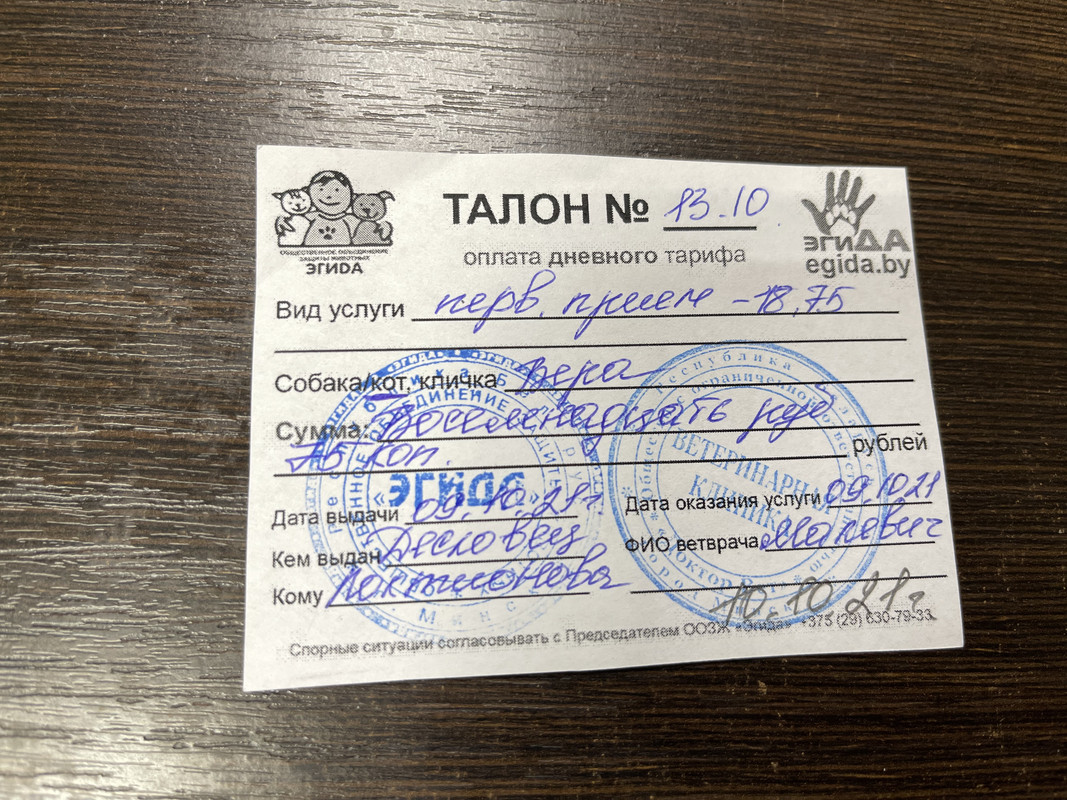 ОБЩЕСТВЕННОЕ ОБЪЕДИНЕНИЕ
ЗАЩИТЫ ЖИВОТНЫХ
ЭГИДА
ТАЛОН № 13.10
ЭГИДА
egida.by
оплата дневного тарифа
Вид услуги перв. прием - 18,75
Собака/кот, кличка Вера
Сумма: Восемнадцать руб
75 коп. рублей
«ЭГИДА»
ВЕТЕРИНАРНАЯ
КЛИНИКА
Дата выдачи 09.10.21г
Дата оказания услуги 09.10.21
Кем выдан
ФИО ветврача
Кому Локтионова
10.10.21г
Спорные ситуации согласовывать с Председателем ООЗЖ «Эгида» +375 (29) 630-79-33